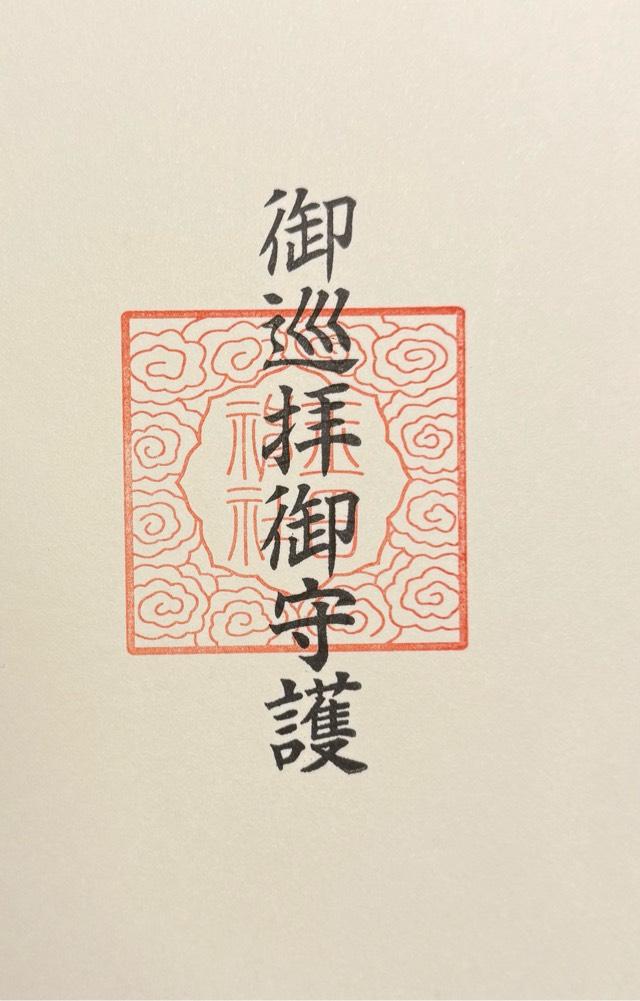 御巡拝御守護